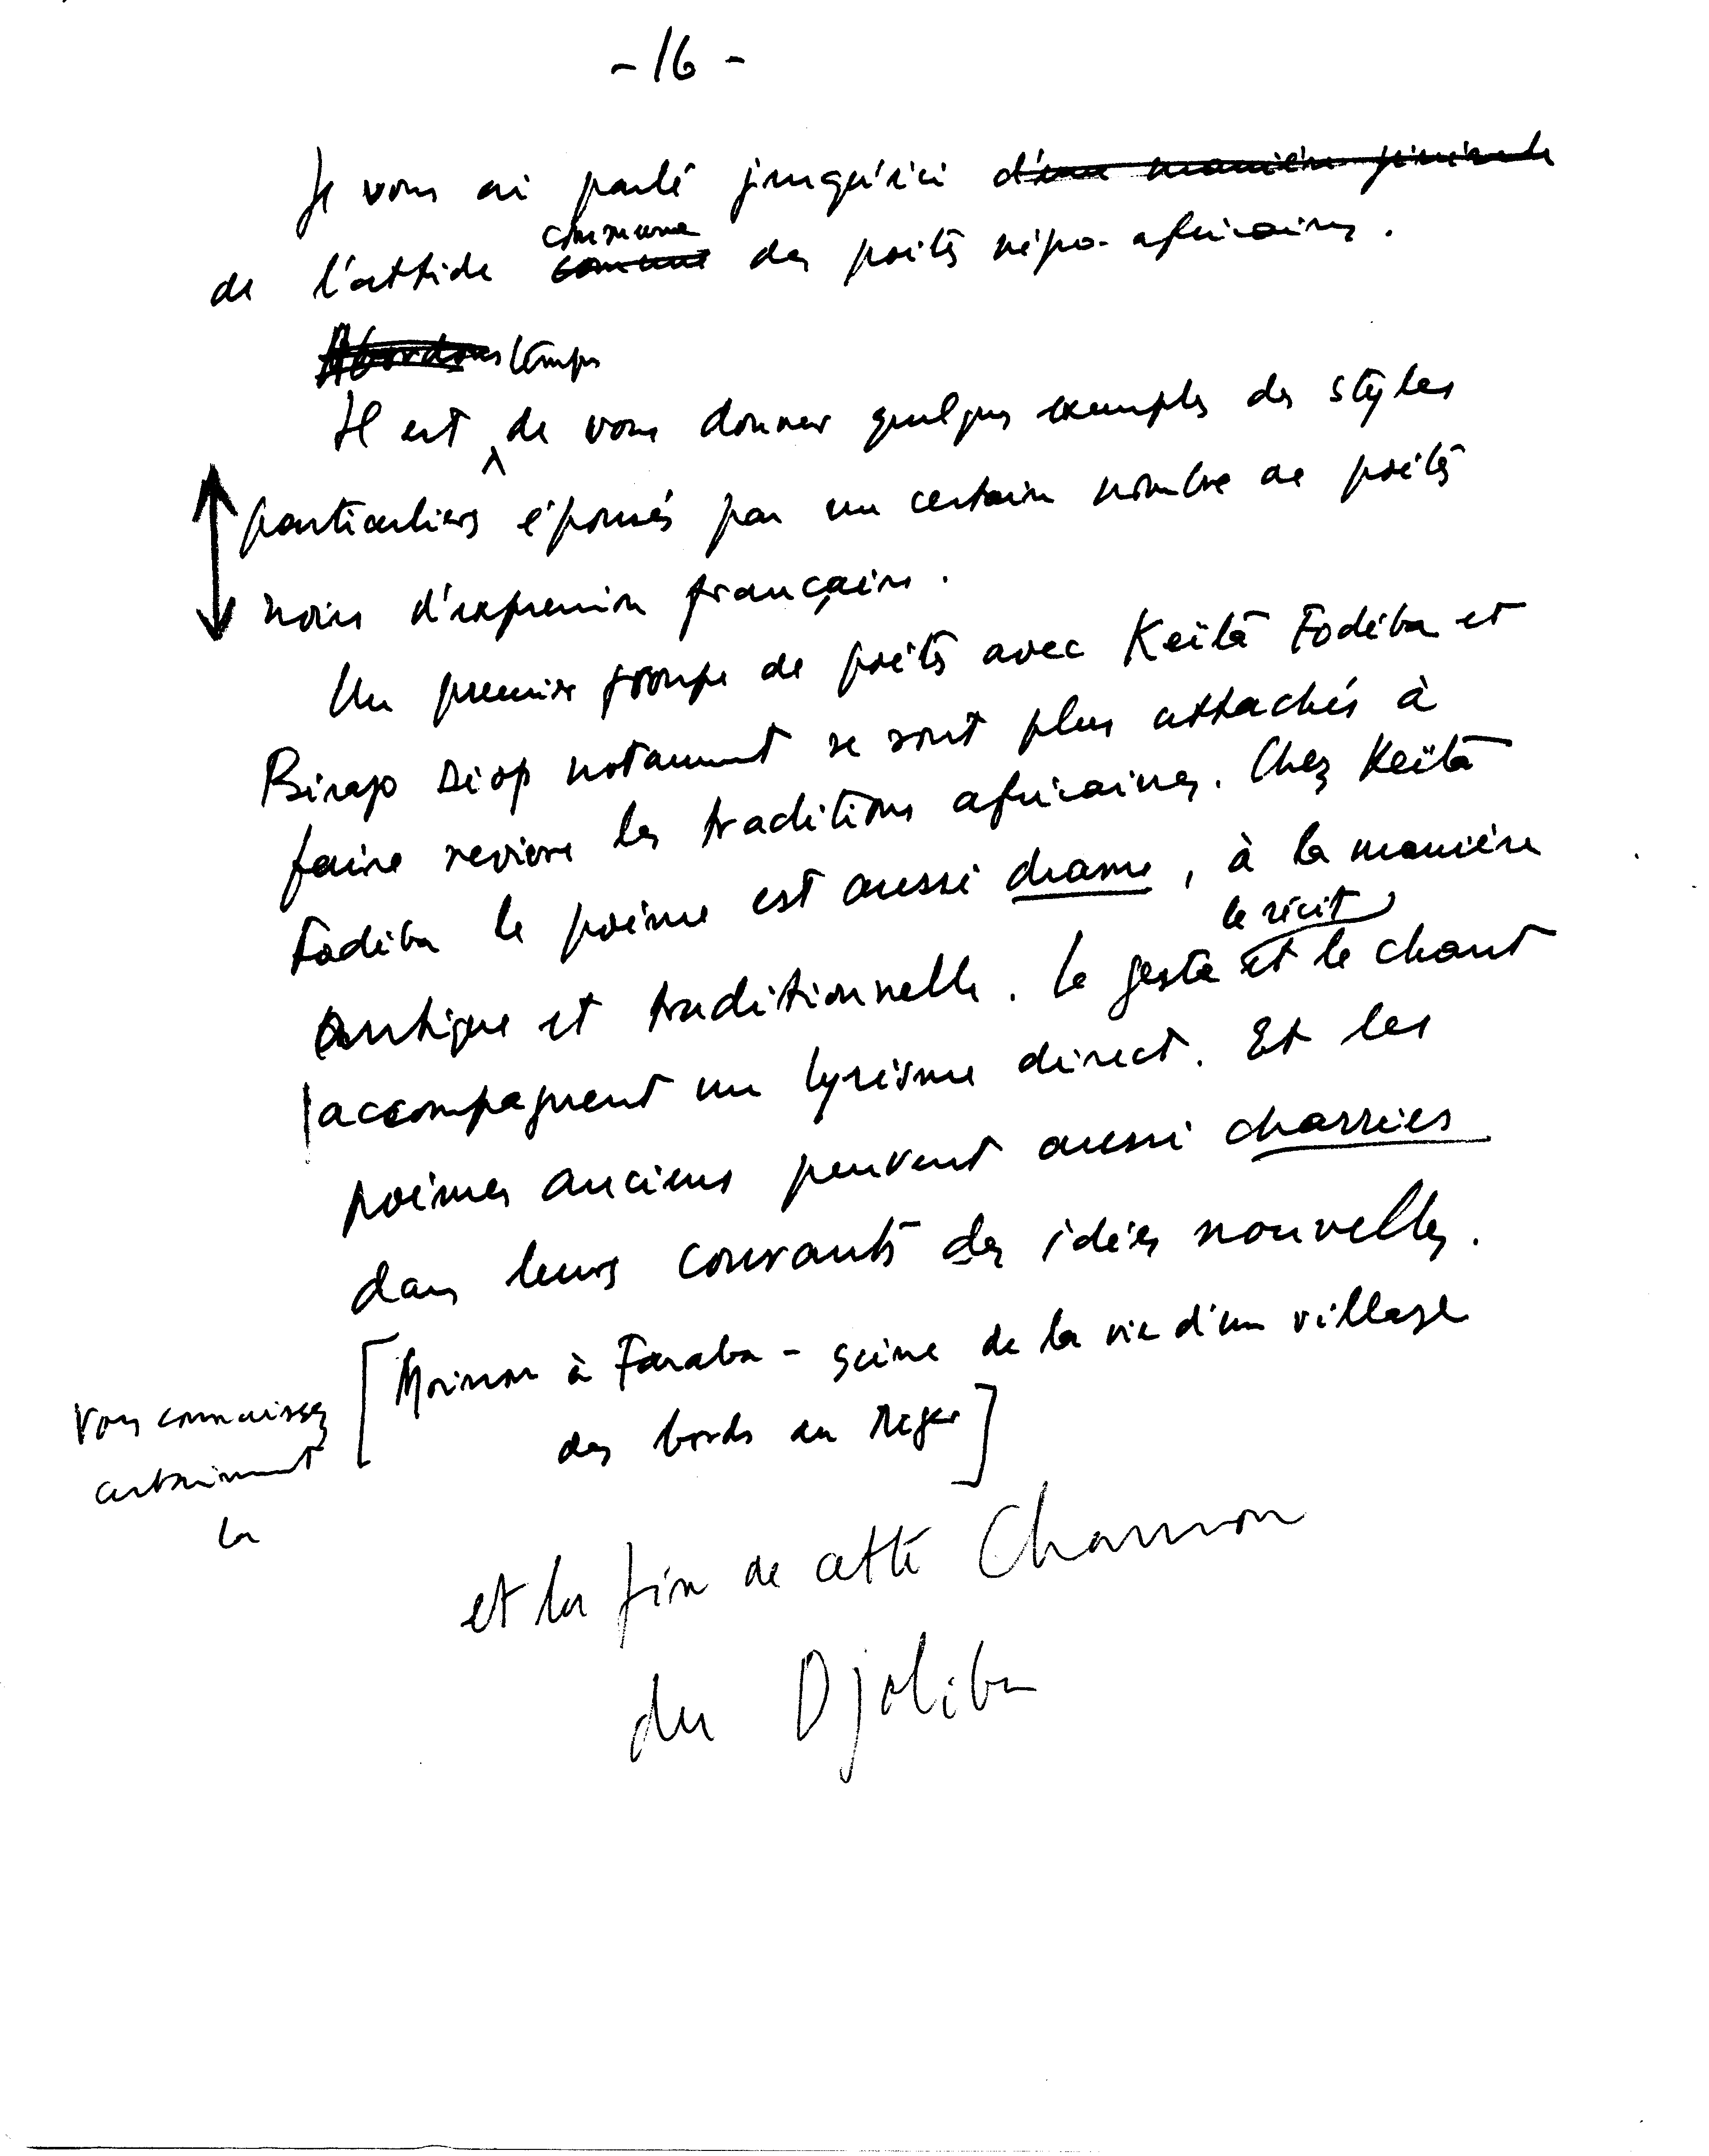 - 16 -
Je vous ai parlé jusqu'ici d'une manière générale
commune
de l'attitude commune des poètes négro-africains.
Abordons temps
Il est de vous donner quelques exemples des styles
particuliers épousés par un certain nombre de poètes
noirs d'expression française.
Un premier groupe de poètes avec Keïta Fodéba et
Birago Diop notamment se sont plus attachés à
faire revivre les traditions africaines. Chez Keïta
Fodéba le poème est aussi drame, à la manière
le récit
antique et traditionnelle. Le geste et le chant
accompagnent un lyrisme direct. Et les
poèmes anciens peuvent aussi charrier
dans leurs courants des idées nouvelles.
[Moisson à Faraba - scène de la vie d'un village
des bords du Niger]
Vous connaissez
certainement
la
et la fin de cette Chanson
du Djoliba